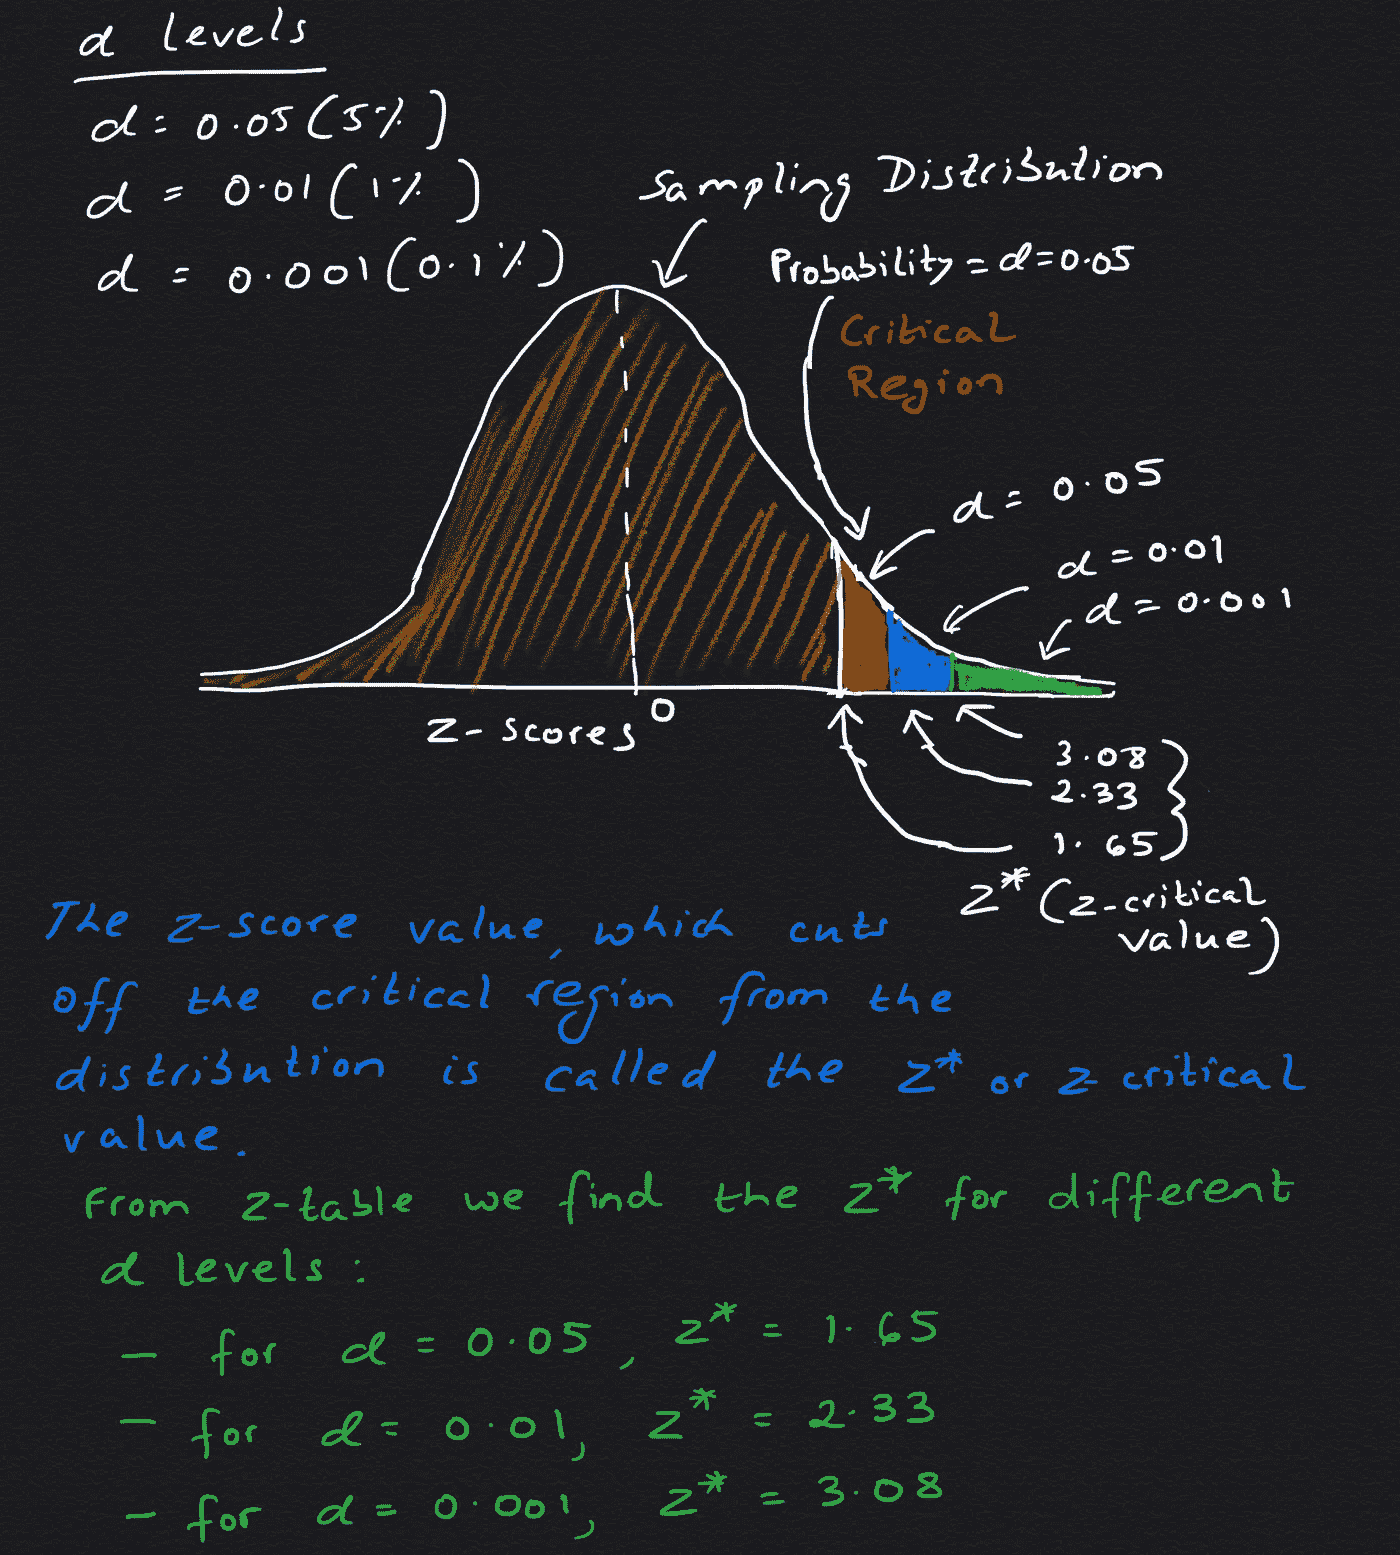 α levels
α = 0.05 (5%)
α = 0.01 (1%)
α = 0.001 (0.1%)
Sampling Distribution
Probability = α = 0.05
Critical
Region
α = 0.05
α = 0.01
α = 0.001
0
z-scores
3.08
2.33
1.65
z* (z-critical
value)
The z-score value, which cuts
off the critical region from the
distribution is called the z* or z critical
value.
From z-table we find the z* for different
α levels:
- for α = 0.05, z* = 1.65
- for α = 0.01, z* = 2.33
- for α = 0.001, z* = 3.08